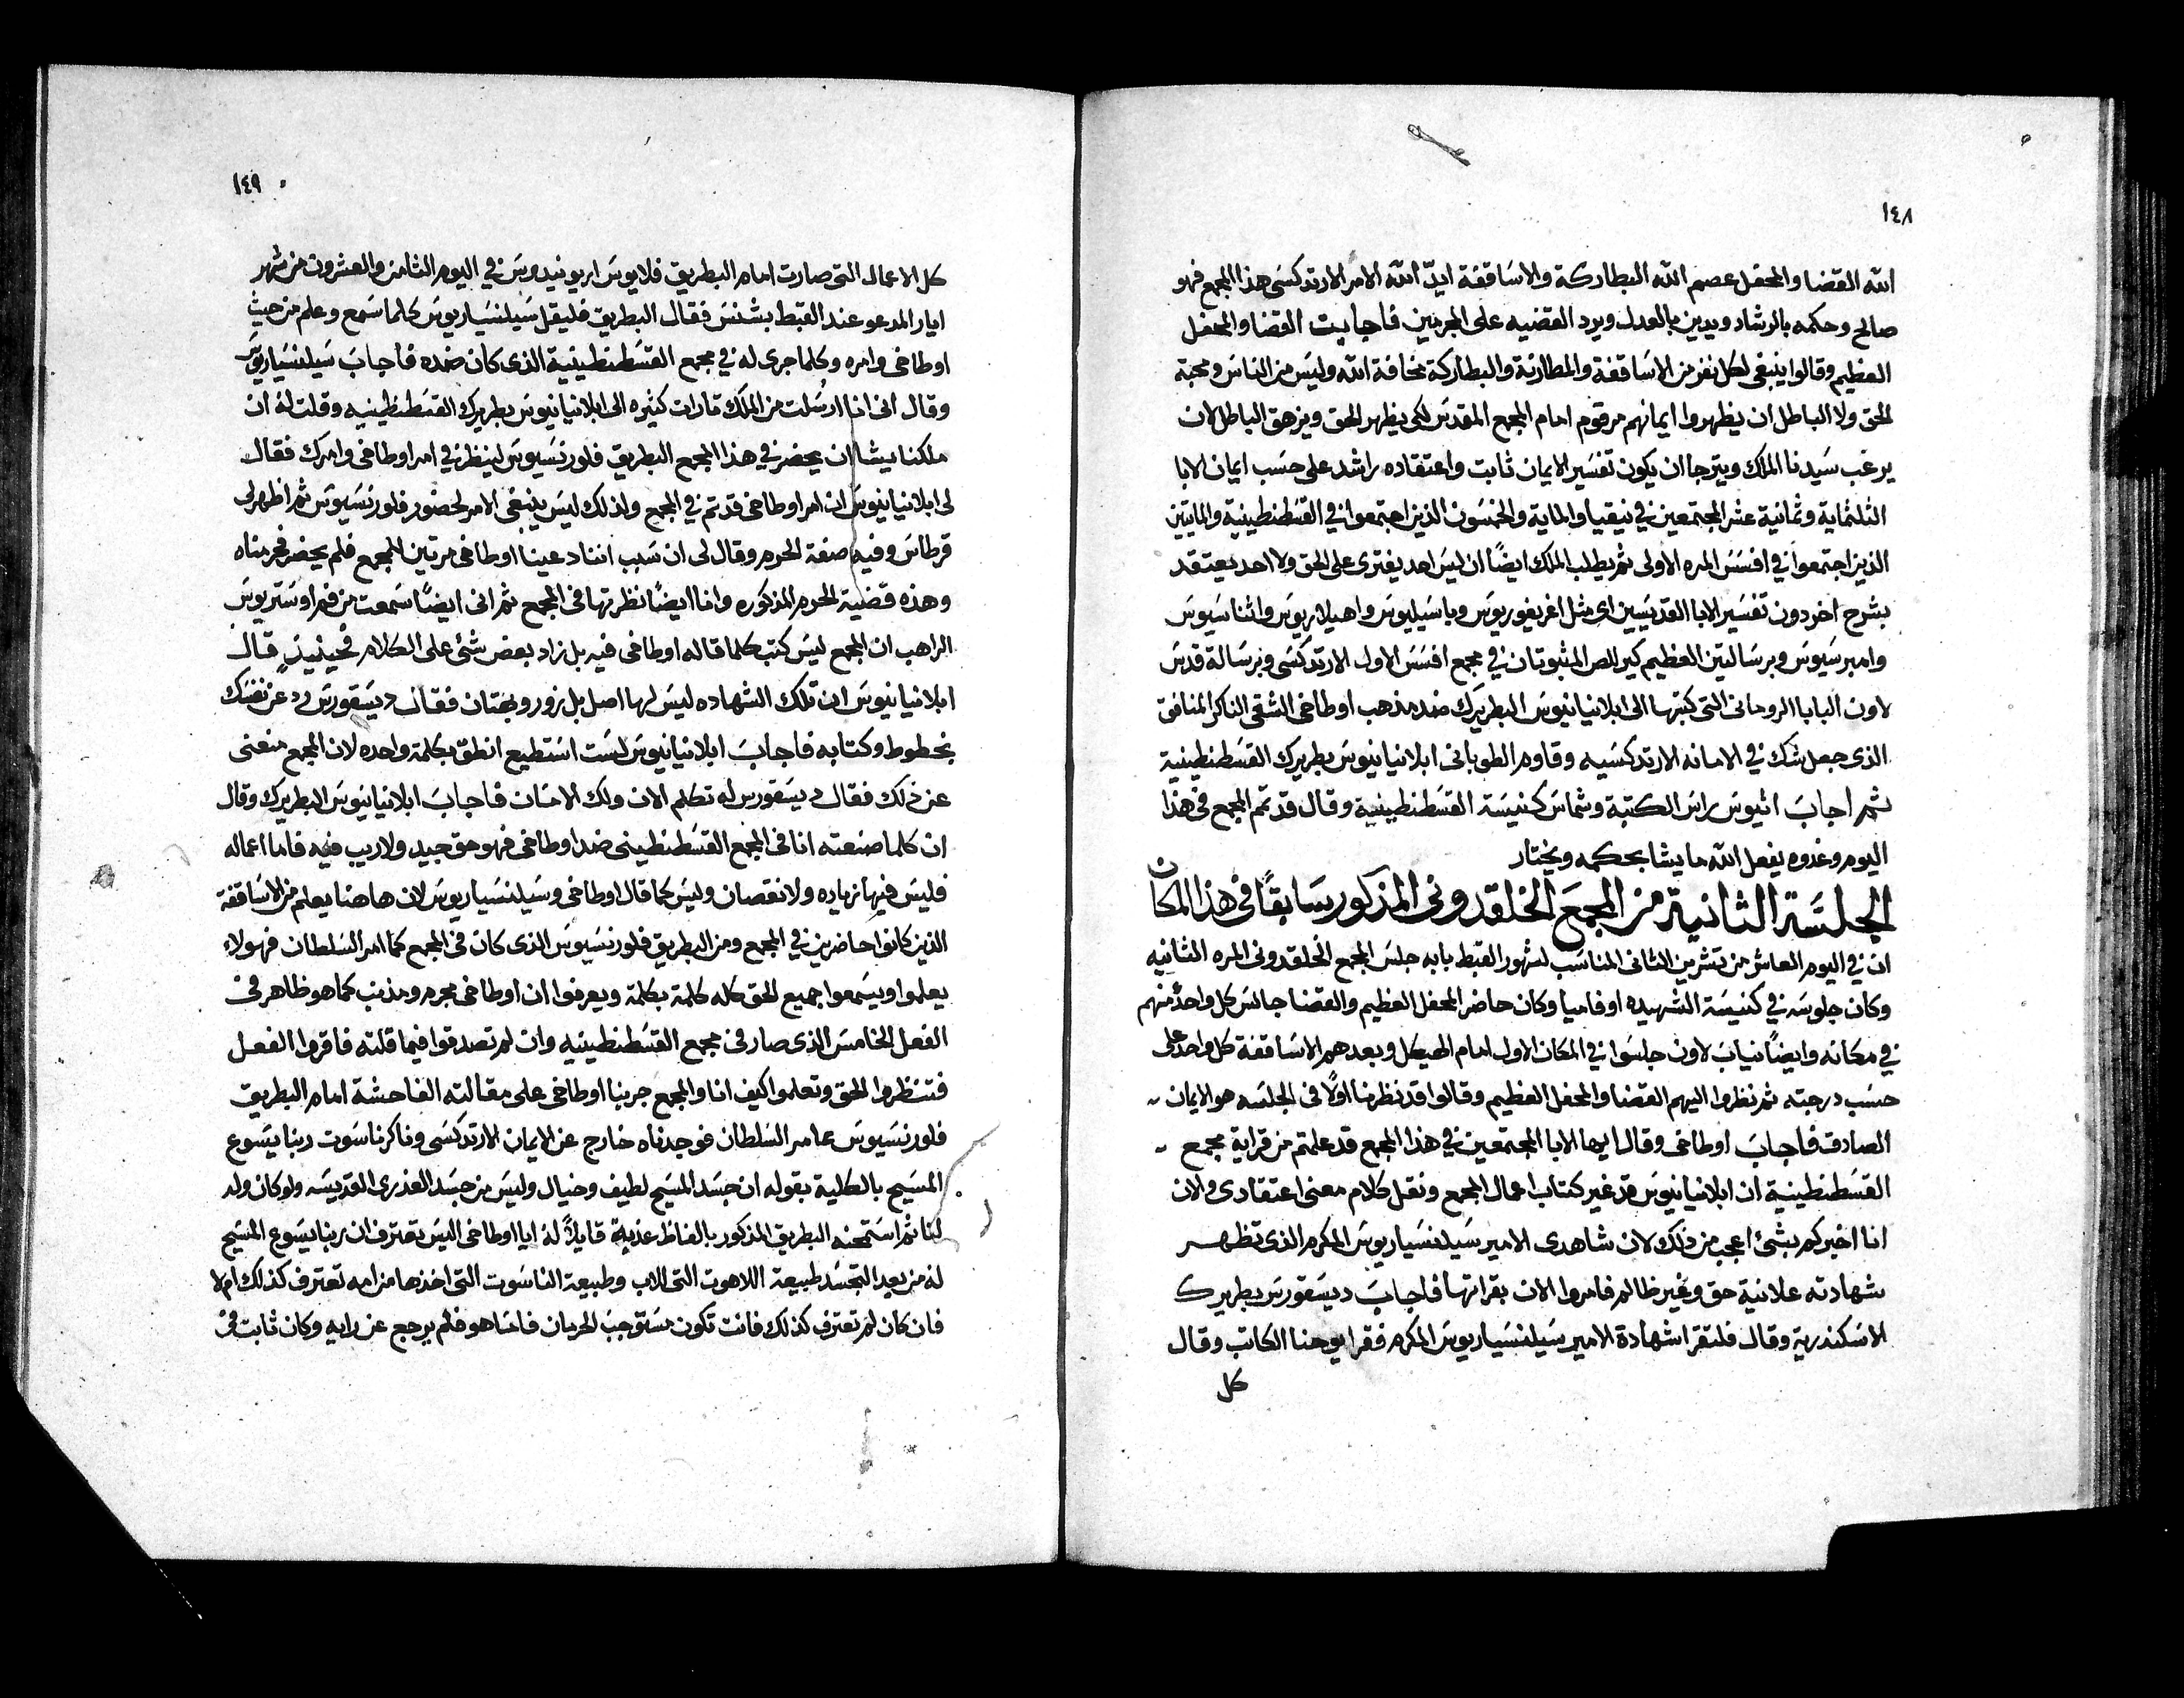 ١٤٨
الله القضا والمحفل عصم الله البطاركة والاساقفة ايد الله الامر الارتدكسى هذا المجمع فهو
صالح وحكمه بالرشاد ويدين بالعدل ويرد القضيه على المجرمين فاجابت القضا والمحفل
العظيم وقالوا ينبغى لكل نفر من الاساقفة والمطارنة والبطاركة مخافة الله وليس من الناس ومحبة
الحق ولا الباطل ان يظهروا ايمانهم مرقوم امام المجمع المقدس لكى يظهر الحق ويزهق الباطل لان
يرغب سيدنا الملك ويترجا ان يكون تفسير الايمان ثابت واعتقاده راشد على حسب ايمان الابا
الثلثماية وثمانية عشر المجتمعين في نيقيا والماية والخمسون الذين اجتمعوا في القسطنطينية والمايتين
الذين اجتمعوا في افسس المره الاولى ثم يطلب الملك ايضًا ان ليس احد يفترى على الحق ولا احد يعتقد
بشرح اخر دون تفسير الابا القديسين اى مثل اغريغوريوس وباسيليوس واهيلاريوس واثناسيوس
وامبرسيوس وبرسالتين العظيم كيرللص المثبوتان في مجمع افسس الاول الارتدكسى وبرسالة قدس
لاون البابا الروحانى التى كتبها الى ابلانيانيوس البطريرك ضد مذهب اوطاخى الشقى الناكر المنافق
الذى جعل شك في الامانه الارتدكسيه وقاوم الطوبانى ابلانيانيوس بطريرك القسطنطينية
ثم اجاب اتيوس راس الكتبة وشماس كنيسة القسطنطينية وقال قد تم المجمع فى هذا
اليوم وغدوه يفعل الله ما يشا بحكمه ويختار
الجلسة الثانية من المجمع الخلقدونى المذكور سابقًا فى هذا المكان
ان في اليوم العاشر من تشرين الثانى المناسب لشهور القبط بابه جلس المجمع الخلقدونى المره الثانيه
وكان جلوسه في كنيسة الشهيده اوفاميا وكان حاضر المحفل العظيم والقضا جالس كل واحد منهم
في مكانه وايضًا نياب لاون جلسوا في المكان الاول امام الهيكل وبعدهم الاساقفة كل واحد على
حسب درجته ثم نظروا اليهم القضا والمحفل العظيم وقالوا قد نظرنا اولًا فى الجلسه هو الايمان
الصادق فاجاب اوطاخى وقال ايها الابا المجتمعين في هذا المجمع قد علمتم من قراية مجمع
القسطنطينية ان ابلانيانيوس قد غير كتاب اعمال المجمع ونقل كلام معنى اعتقادى والان
انا اخبركم بشئ اعجب من ذلك لان شاهدى الامير سيلنسياريوس المكرم الذى تظهر
شهادته علانية حق وغير ظالم فامروا الان بقراتها فاجاب ديسقورس بطريرك
الاسكندرية وقال فلتقرا شهادة الامير سيلنسياريوس المكرم فقرا يوحنا الكاتب وقال
كل
١٤٩
كل الاعمال التى صارت امام البطريق فلايوس اريونيدوس في اليوم الثامن والعشرون من شهر
ايار المدعو عند القبط بشنس فقال البطريق فليقل سيلنسياريوس كلما سمع وعلم من حيث
اوطاخى وامره وكلما جرى له في مجمع القسطنطينية الذى كان ضده فاجاب سيلنسياريوس
وقال انى انا ارسلت من الملك تارات كثيره الى ابلانيانيوس بطريرك القسطنطينيه وقلت له ان
ملكنا يشا ان يحضر في هذا المجمع البطريق فلورنسيوس لينظر في امر اوطاخى وامرك فقال
لى ابلانيانيوس ان امر اوطاخى قد تم في المجمع ولذلك ليس ينبغى الامر لحضور فلورنسيوس ثم اظهر لى
قرطاس وفيه صفة الحرم وقال لى ان سبب اننا دعينا اوطاخى مرتين للمجمع فلم يحضر فحرمناه
وهذه قضية الحرم المذكوره وانا ايضًا نظرتها فى المجمع ثم انى ايضًا سمعت من فم اوستريوس
الراهب ان المجمع ليس كتب كلما قاله اوطاخى فيه بل زاد بعض شئ على الكلام فحينيذٍ قال
ابلانيانيوس ان تلك الشهاده ليس لها اصل بل زور وبهتان فقال ديسقورس رد عن نفسك
بخطوط وكتابه فاجاب ابلانيانيوس لست استطيع انطق بكلمة واحده لان المجمع منعنى
عن ذلك فقال ديسقورس له تكلم الان ولك الامان فاجاب ابلانيانيوس البطريرك وقال
ان كلما صنعته انا فى المجمع القسطنطينى ضد اوطاخى فهو حق جيد ولا ريب فيه فاما اعماله
فليس فيها زياده ولا نقصان وليس كما قال اوطاخى وسيلنسياريوس لان هاهنا يعلم من الاساقفة
الذين كانوا حاضرين في المجمع ومن البطريق فلورنسيوس الذى كان فى المجمع كما امر السلطان فهولاء
يعلموا ويسمعوا جميع الحق كله كلمة بكلمة ويعرفوا ان اوطاخى مجرم ومذنب كما هو ظاهر فى
الفعل الخامس الذى صار فى مجمع القسطنطينيه وان لم تصدقوا فيما قلته فاقروا الفعل
فتنظروا الحق وتعلموا كيف انا والمجمع جربنا اوطاخى على مقالته الفاحشة امام البطريق
فلورنسيوس عامر السلطان فوجدناه خارج عن الايمان الارتدكسى وناكر ناسوت ربنا يسوع
المسيح بالكلية بقوله ان جسد المسيح لطيف وخيال وليس من جسد العذرى القديسه ولو كان ولد
لنا ثم استمحنه البطريق المذكور بالفاظ عذبه قايلاً له ايا اوطاخى اليس تعترف ان ربنا يسوع المسيح
له من بعد التجسد طبيعة اللاهوت التى للاب وطبيعة الناسوت التى اخذها من امه تعترف كذلك ام لا
فان كان لم تعترف كذلك فانت تكون مستوجب الحرمان فامنا هو فلم يرجع عن رايه وكان ثابت فى